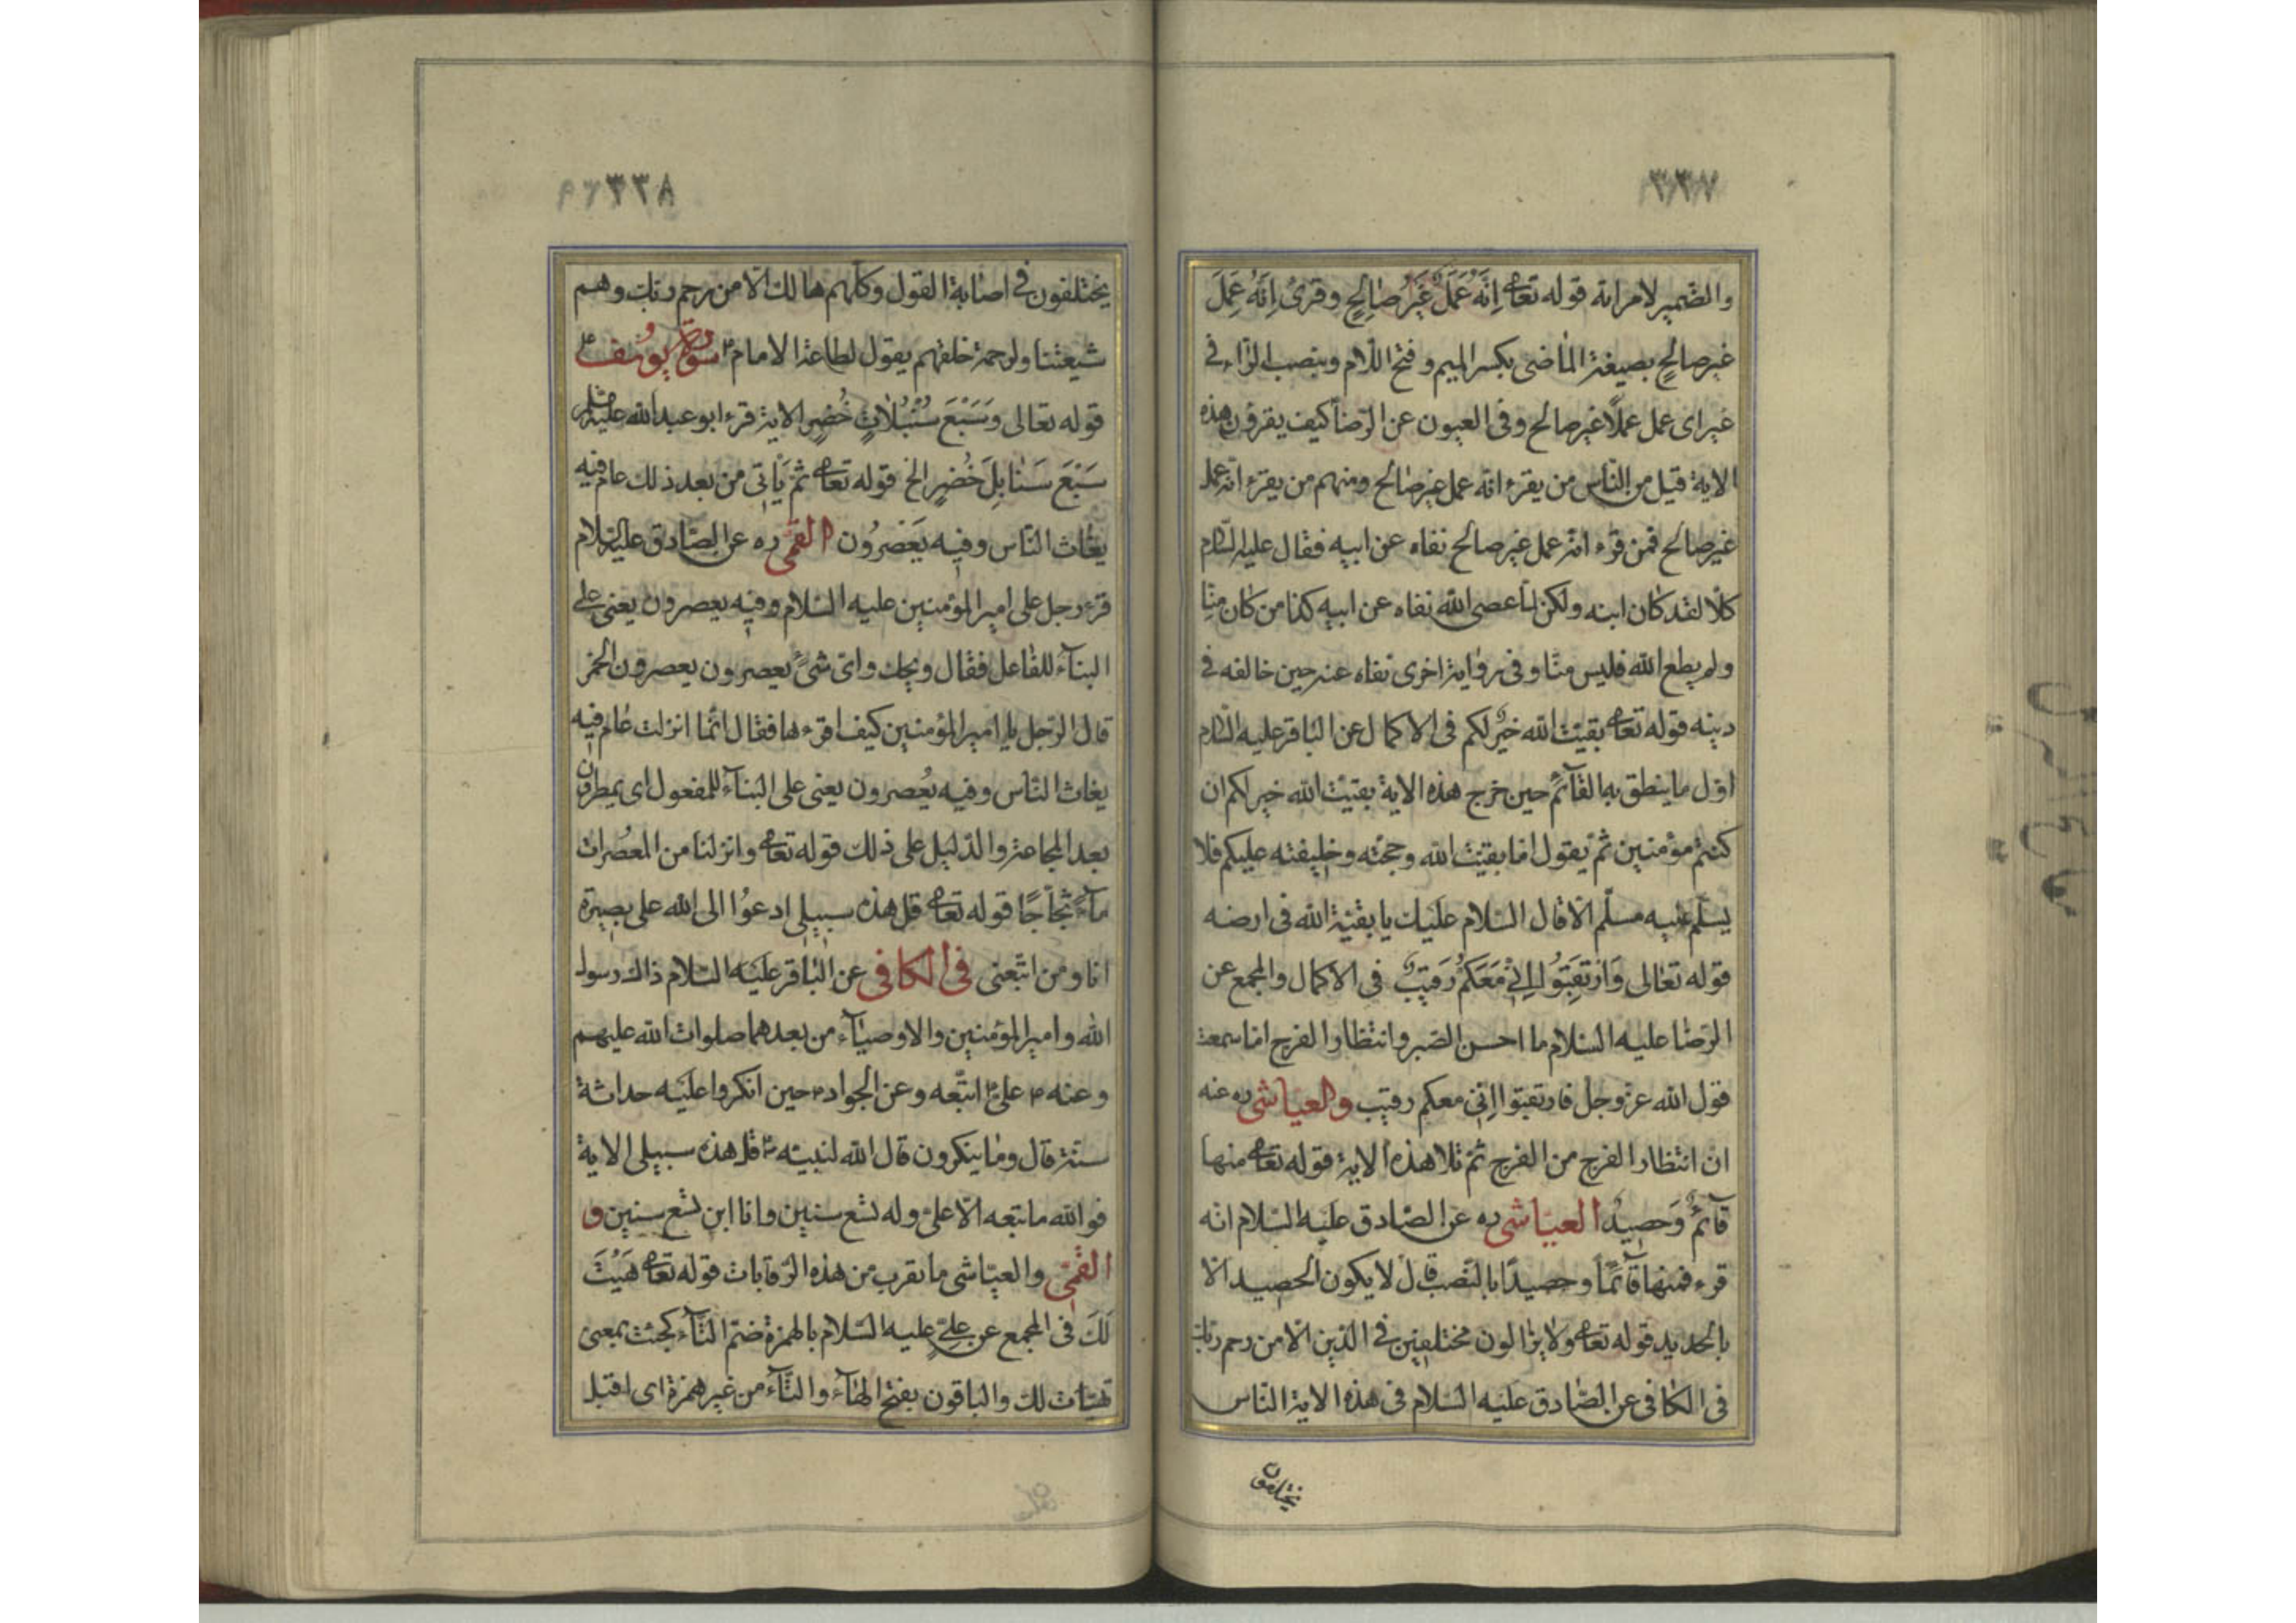 ٣٣٧
والضمير لامرانه قوله تعا إِنَّهُ عَمَلٌ غَيْرُ صَالِحٍ وقرئ إِنَّهُ عَمِلَ
غير صالحٍ بصيغة الماضى بكسر الميم وفتح اللام وبنصب الراء فى
غير اى عمل عملاً غير صالح وفى العيون عن الرضا كيف يقرؤن هذه
الاية قيل من النّاس من يقرء انّه عمل غير صالح ومنهم من يقرء انّه عمل
غير صالح فمن قرء انّه عمل غير صالح نفاه عن ابيه فقال عليه السّلام
كلّا لقد كان ابنه ولكن لمّا عصى الله نفاه عن ابيه كذا من كان منّا
ولم يطع الله فليس منّا وفى رواية اخرى نفاه عنه حين خالفه فى
دينه قوله تعا بقيّت الله خيرٌ لكم فى الاكمال عن الباقر عليه السّلام
اوّل ما ينطق به القآئم حين خرج هذه الاية بقيّت الله خير لكم ان
كنتم مؤمنين ثمّ يقول انا بقيّت الله وحجّته وخليفته عليكم فلا
يسلّم عليه مسلّم الّا قال السّلام عليك يا بقيّة الله فى ارضه
قوله تعالى وَارْتَقِبُوا إِنِّي مَعَكُمْ رَقيبٌ فى الاكمال والمجمع عن
الرّضا عليه السّلام ما احسن الصّبر وانتظار الفرج اما سمعت
قول الله عزّ وجلّ فارتقبوا انّى معكم رقيب والعيّاشى ره عنه
انّ انتظار الفرج من الفرج ثمّ تلا هذه الاية قوله تعا منها
قآئمٌ وَحصيدٌ العيّاشى ره عن الصّادق عليه السّلام انّه
قرء فمنها قآئماً وحصيدًا بالنّصب قال لا يكون الحصيد الّا
بالحديد قوله تعا ولا يزالون مختلفين فى الدّين الّا من رحم ربّك
فى الكافى عن الصّادق عليه السّلام فى هذه الاية النّاس
يختلفون
٣٣٨
يختلفون فى اصابة القول وكلّهم هالك الّا من رحم ربّك وهم
شيعتنا ولرحمة خلقهم يقول لطاعة الامام سورة يوسف
قوله تعالى وَسَبْعَ سُنْبُلَاتٍ خُضْرٍ الاية قرء ابو عبد الله عليه السلم
سَبْعَ سَنَابِلَ خُضْرٍ الخ قوله تعا ثُمَّ يَأْتى من بعد ذلك عام فيه
يغاث النّاس وفيه يَعْصِرُون القمّى ره عن الصّادق عليه السّلام
قرء رجل على امير المؤمنين عليه السّلام وفيه يعصرون يعنى على
البنآء للفاعل فقال ويحك واىّ شىءٍ يعصرون يعصرون الخمر
قال الرّجل يا امير المؤمنين كيف اقرءها فقال انّما انزلت عام فيه
يغاث النّاس وفيه يُعصرون يعنى على البنآء للمفعول اى يمطرون
بعد المجاعة والدّليل على ذلك قوله تعا وانزلنا من المعصرات
مآءً ثجّاجًا قوله تعا قل هذه سبيلى ادعوُا الى الله على بصيرة
انا ومن اتّبعنى فى الكافى عن الباقر عليه السّلام ذاك رسول
الله وامير المؤمنين والاوصيآء من بعدهما صلوات الله عليهم
وعنه علىّ اتّبعه وعن الجواد حين انكروا عليه حداثة
سنّه قال وما ينكرون قال الله لنبيّه قل هذه سبيلى الاية
فوالله ما تبعه الّا علىّ وله تسع سنين وانا ابن تسع سنين و
القمّى والعيّاشى ما نقرب من هذه الرّوايات قوله تعا هَيْتَ
لَكَ فى المجمع عن علىٍّ عليه السّلام بالهمزة ضمّ التّآء كجئت بمعنى
تهيّأت لك والباقون بفتح الهآء والتّآء من غير همزة اى اقبل